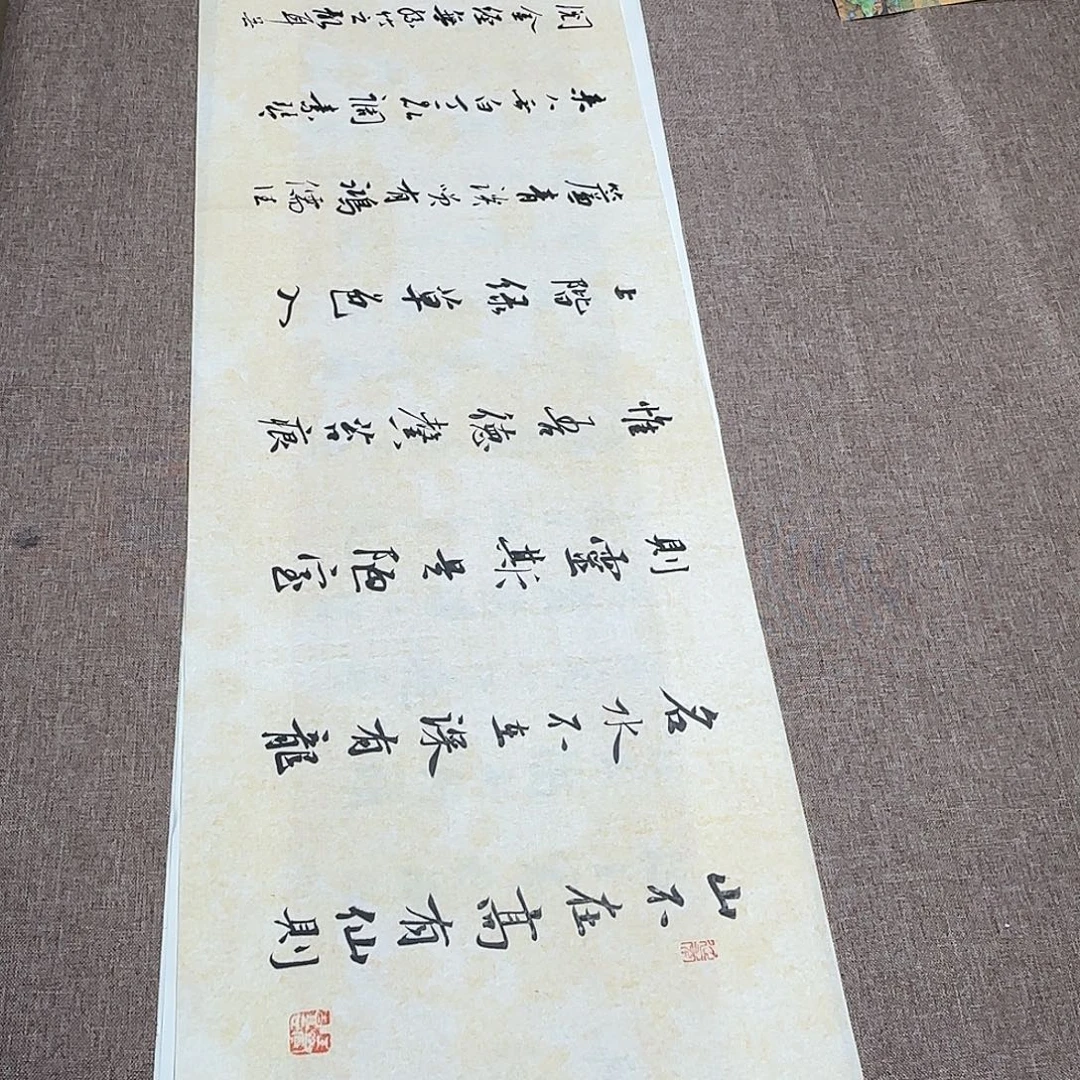 山不在高有仙則
名水不在深有龍
則靈斯是陋室
惟吾德馨苔痕
上階緑草色入
簾青談笑有鴻儒往
来無白丁可以調素琴
閱金經無絲竹之亂耳無